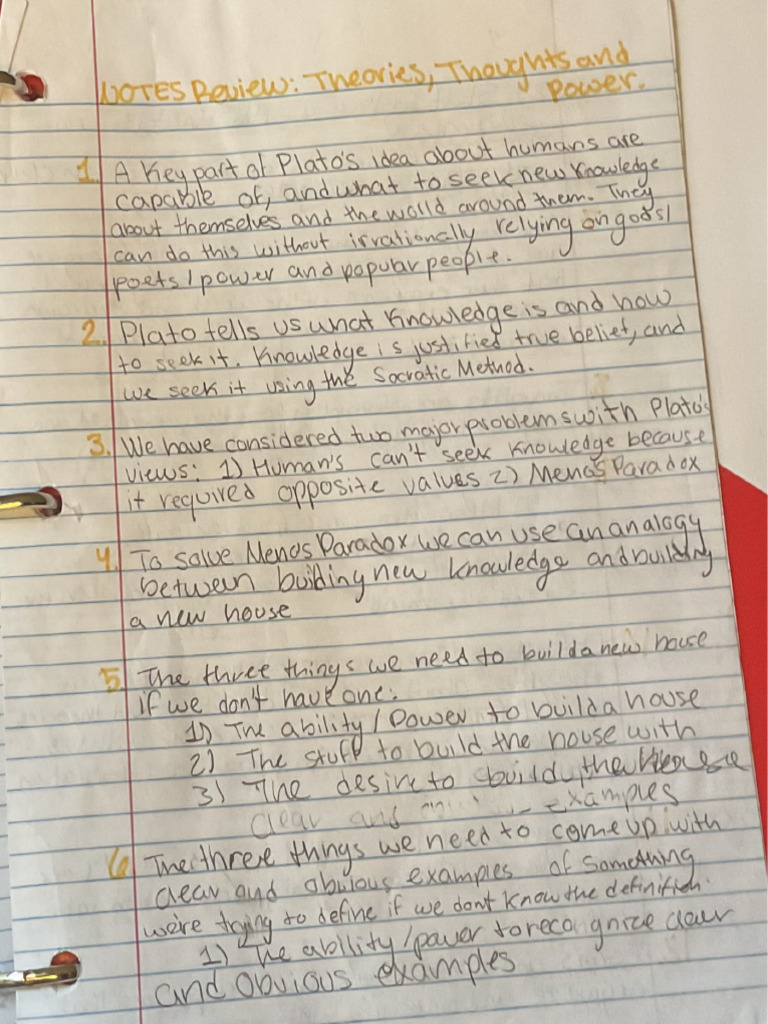 NOTES Review: Theories, Thoughts and
Power.
1. A Key part of Plato's idea about humans are
capable of, and what to seek new knowledge
about themselves and the world around them. They
can do this without irrationally relying on gods/
poets/power and popular people.
2. Plato tells us what Knowledge is and how
to seek it. Knowledge is justified true belief, and
we seek it using the Socratic Method.
3. We have considered two major problems with Plato's
views: 1) Human's can't seek Knowledge because
it required opposite values 2) Menos Paradox
4. To solve Menos Paradox we can use an analogy
between building new knowledge and building
a new house
5. The three things we need to build a new house
if we don't have one:
1) The ability/power to build a house
2) The stuff to build the house with
3) The desire to build the house
clear and examples
6 The three things we need to come up with
clear and obvious examples of something
we're trying to define if we dont know the definition.
1) The abillity/power to recognize clear
and obvious examples